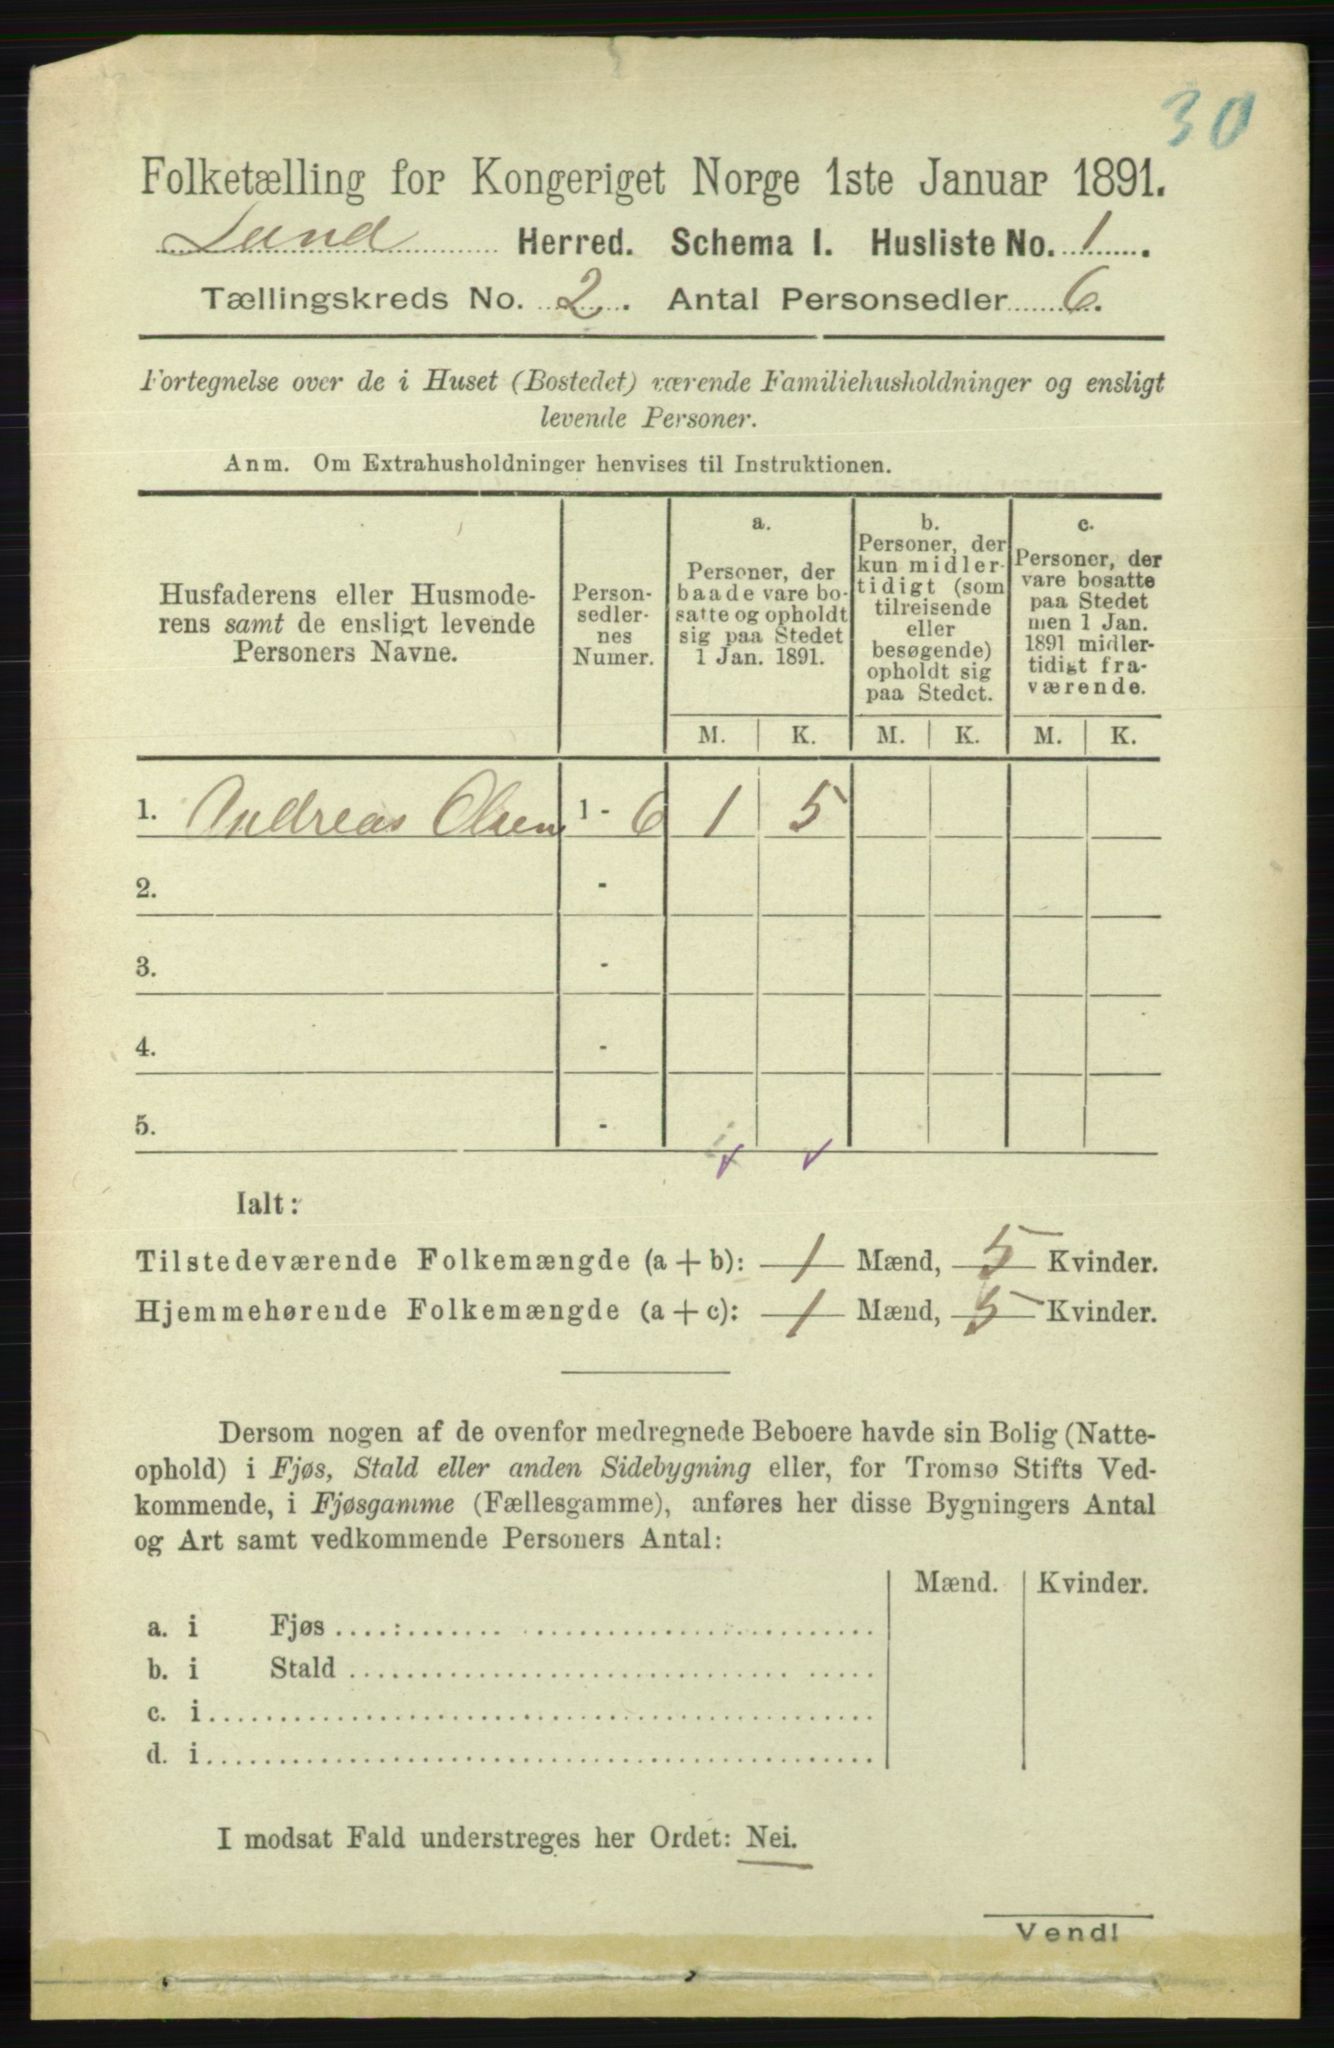 30
Folketælling for Kongeriget Norge 1ste Januar 1891.
Lund Herred. Schema I. Husliste No. 1.
Tællingskreds No. 2. Antal Personsedler 6.
Fortegnelse over de i Huset (Bostedet) værende Familiehusholdninger og ensligt
levende Personer.
Anm. Om Extrahusholdninger henvises til Instruktionen.
Husfaderens eller Husmode-
rens samt de ensligt levende
Personers Navne.
Person-
sedler-
nes
Numer.
a.
Personer, der
baade vare bo-
satte og opholdt
sig paa Stedet
1 Jan. 1891.
b.
Personer, der
kun midler-
tidigt (som
tilreisende
eller
besøgende)
opholdt sig
paa Stedet.
c.
Personer, der
vare bosatte
paa Stedet
men 1 Jan.
1891 midler-
tidigt fra-
værende.
M. K. M. K. M. K.
1. Andreas Olsen 1 - 6 1 5
2. -
3. -
4. -
5. -
Ialt:
Tilstedeværende Folkemængde (a + b): 1 Mænd, 5 Kvinder.
Hjemmehørende Folkemængde (a + c): 1 Mænd, 5 Kvinder.
Dersom nogen af de ovenfor medregnede Beboere havde sin Bolig (Natte-
ophold) i Fjøs, Stald eller anden Sidebygning eller, for Tromsø Stifts Ved-
kommende, i Fjøsgamme (Fællesgamme), anføres her disse Bygningers Antal
og Art samt vedkommende Personers Antal:
Mænd. Kvinder.
a. i Fjøs
b. i Stald
c. i
d. i
I modsat Fald understreges her Ordet: Nei.
Vend!